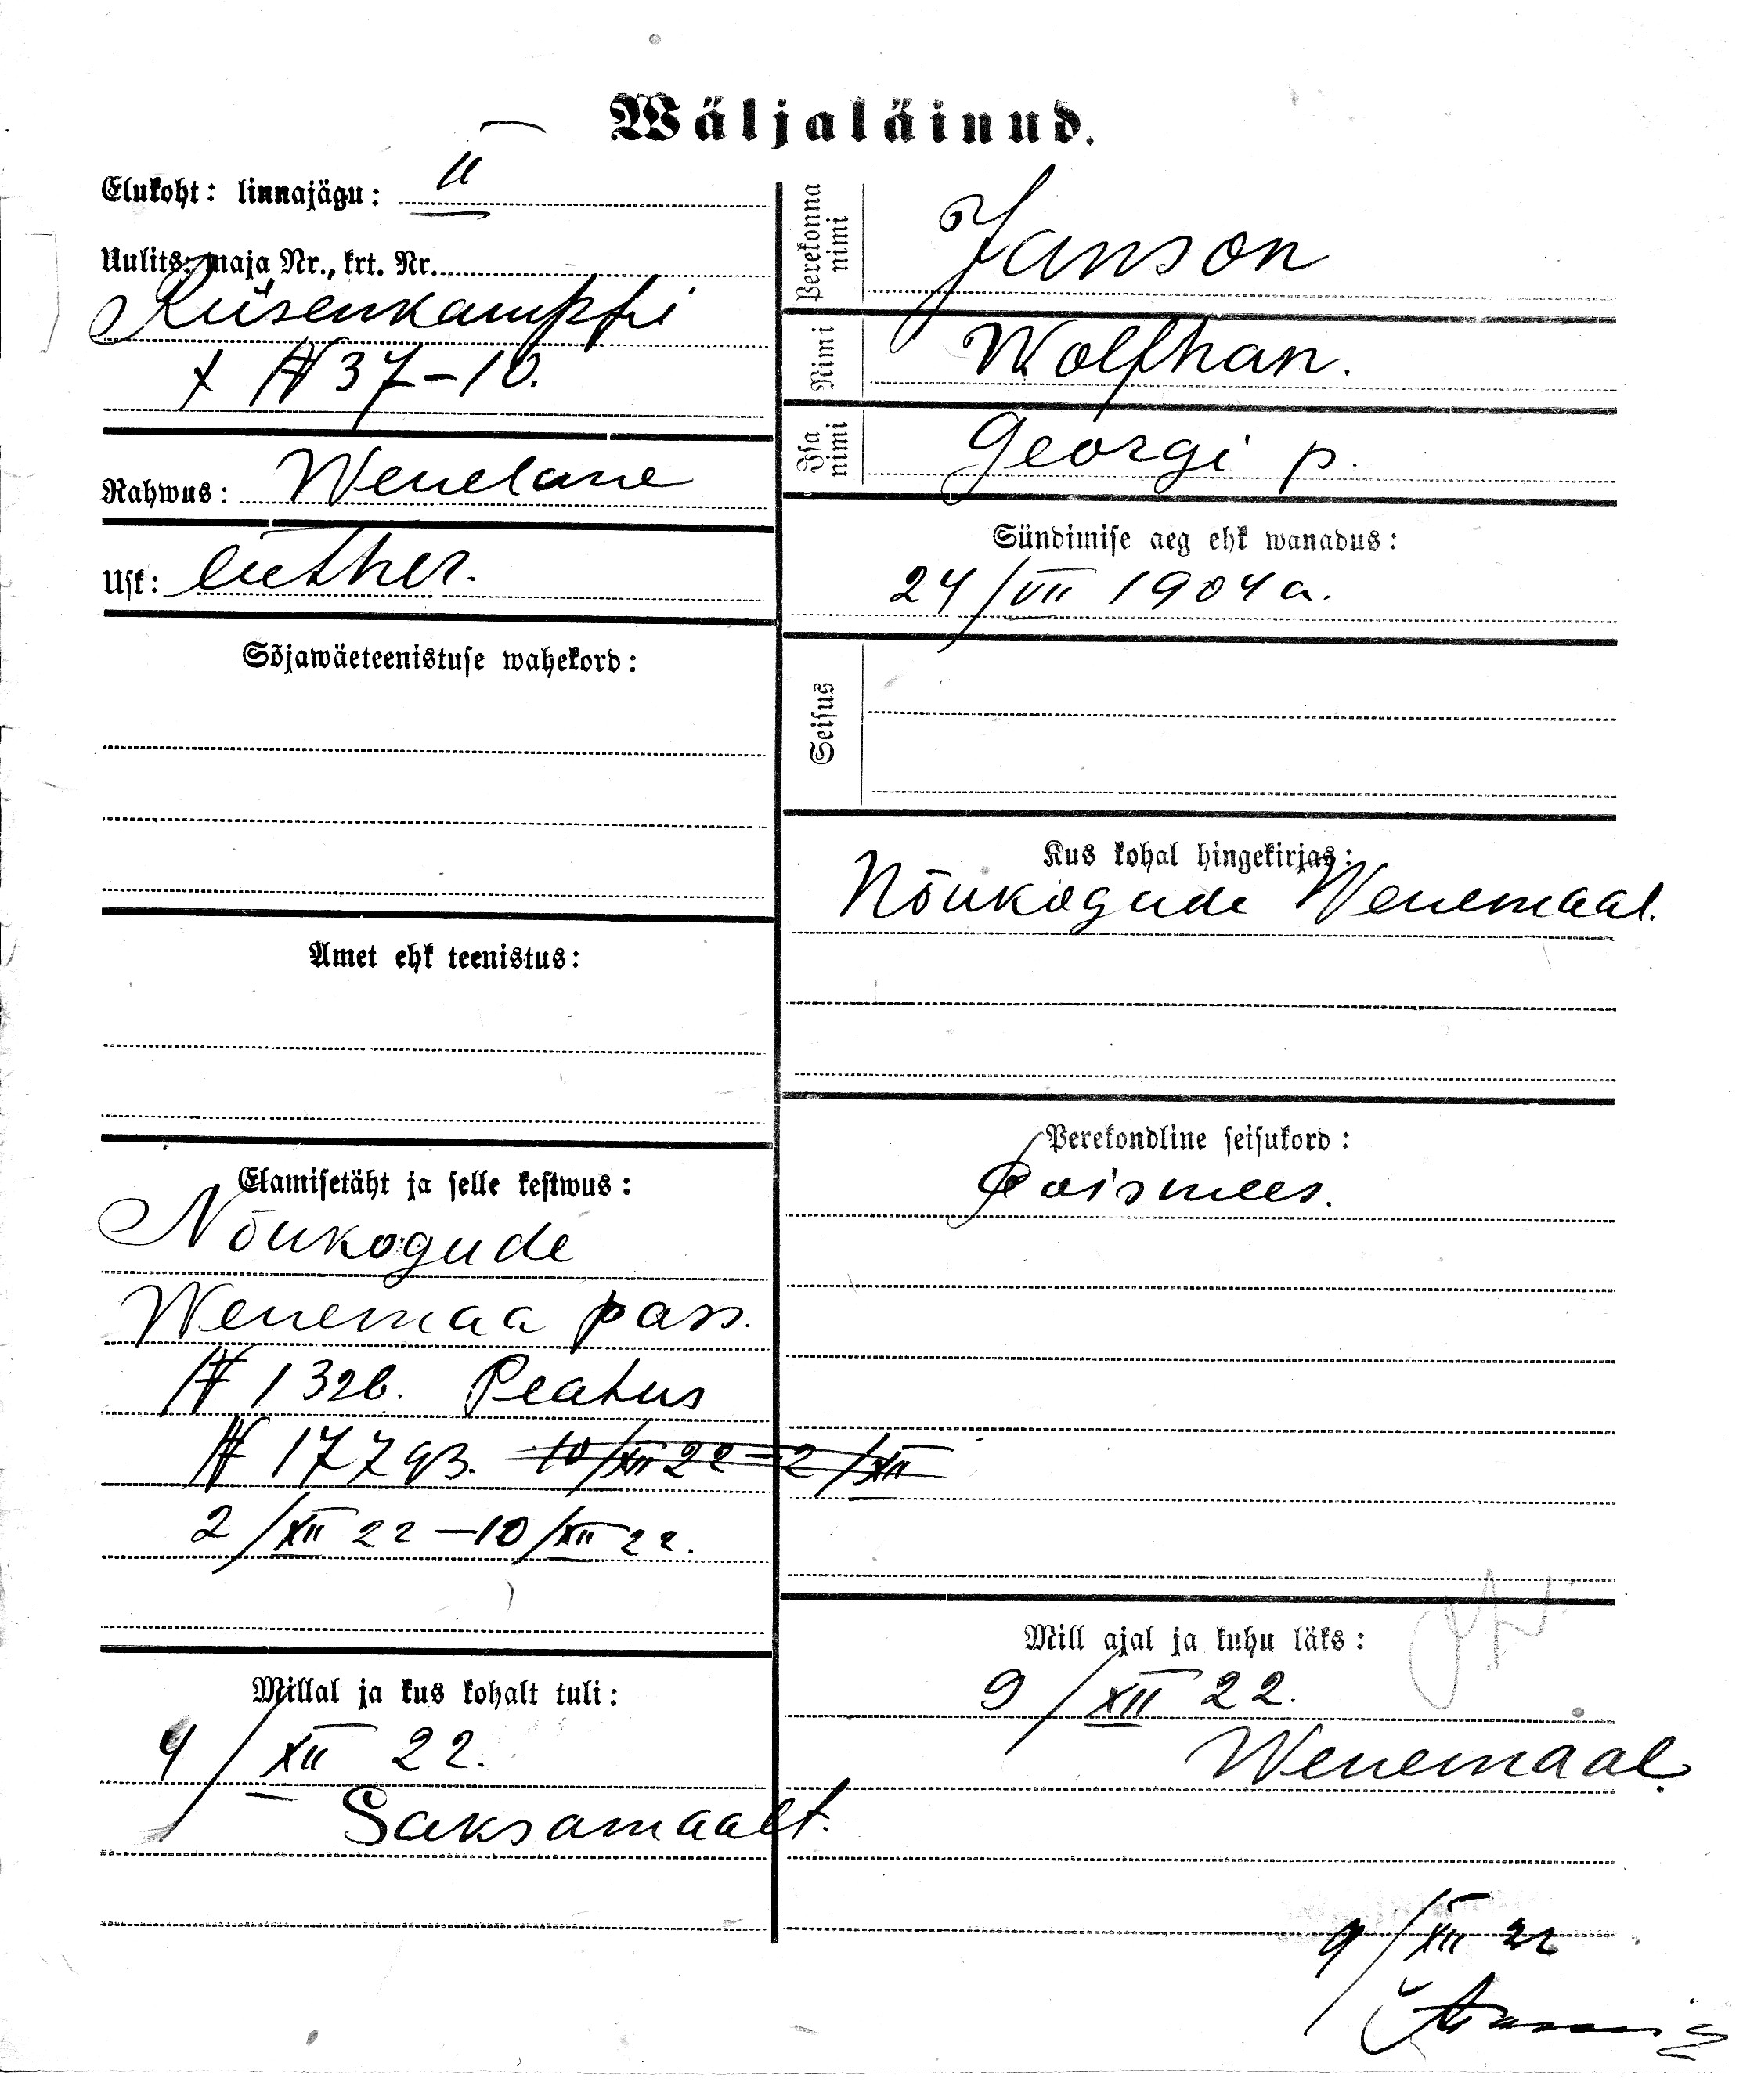 Wäljaläinud.
Elukoht: linnajägu: II
Uulits: maja Nr., krt. Nr.
Riisenkampfi
№ 37-10.
Rahwus: Wenelane
Usk: luther.
Sõjawäeteenistuse wahekord:
Amet ehk teenistus:
Elamisetäht ja selle kestwus:
Nõukogude
Wenemaa pass.
№ 1326. Peatus
№ 177 10/XII 22 - 2/XII
2/XII 22 - 10/XII 22.
Millal ja kus kohalt tuli:
4/XII 22.
Saksamaalt.
Perekonna nimi Janson
Nimi Wolfhan.
Isa nimi Georgi p.
Sündimise aeg ehk wanadus:
24/VII 1904 a.
Seisus
Kus kohal hingekirjas:
Nõukogude Wenemaal.
Perekondline seisukord:
Poismees.
Mill ajal ja kuhu läks:
9/XII 22.
Wenemaal.
9/XII 22